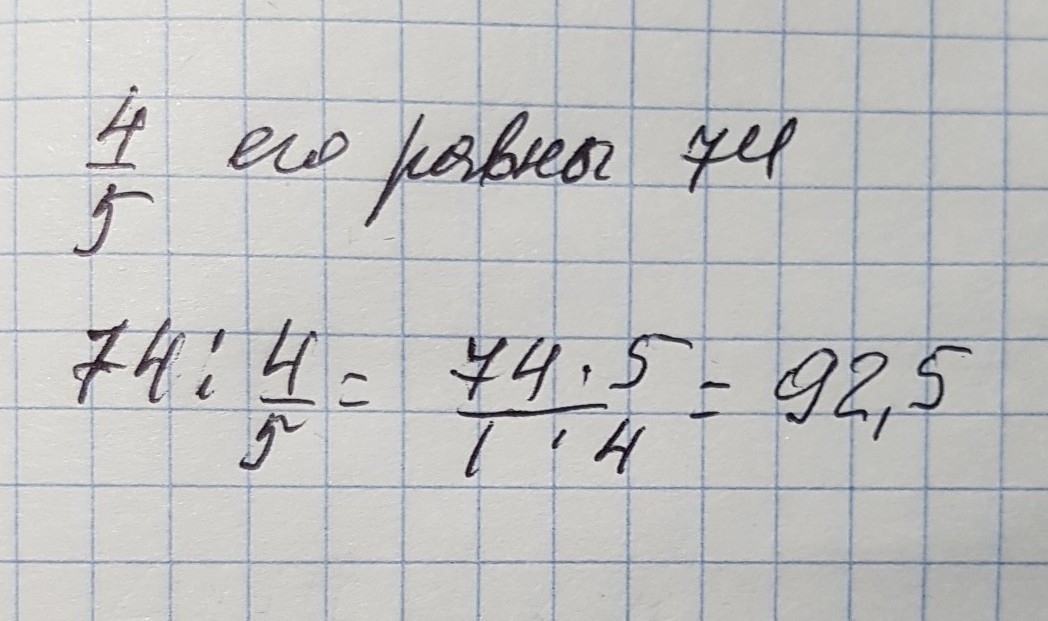 4/5 его равны 74
74 : 4/5 = 74 · 5 / 1 · 4 = 92,5